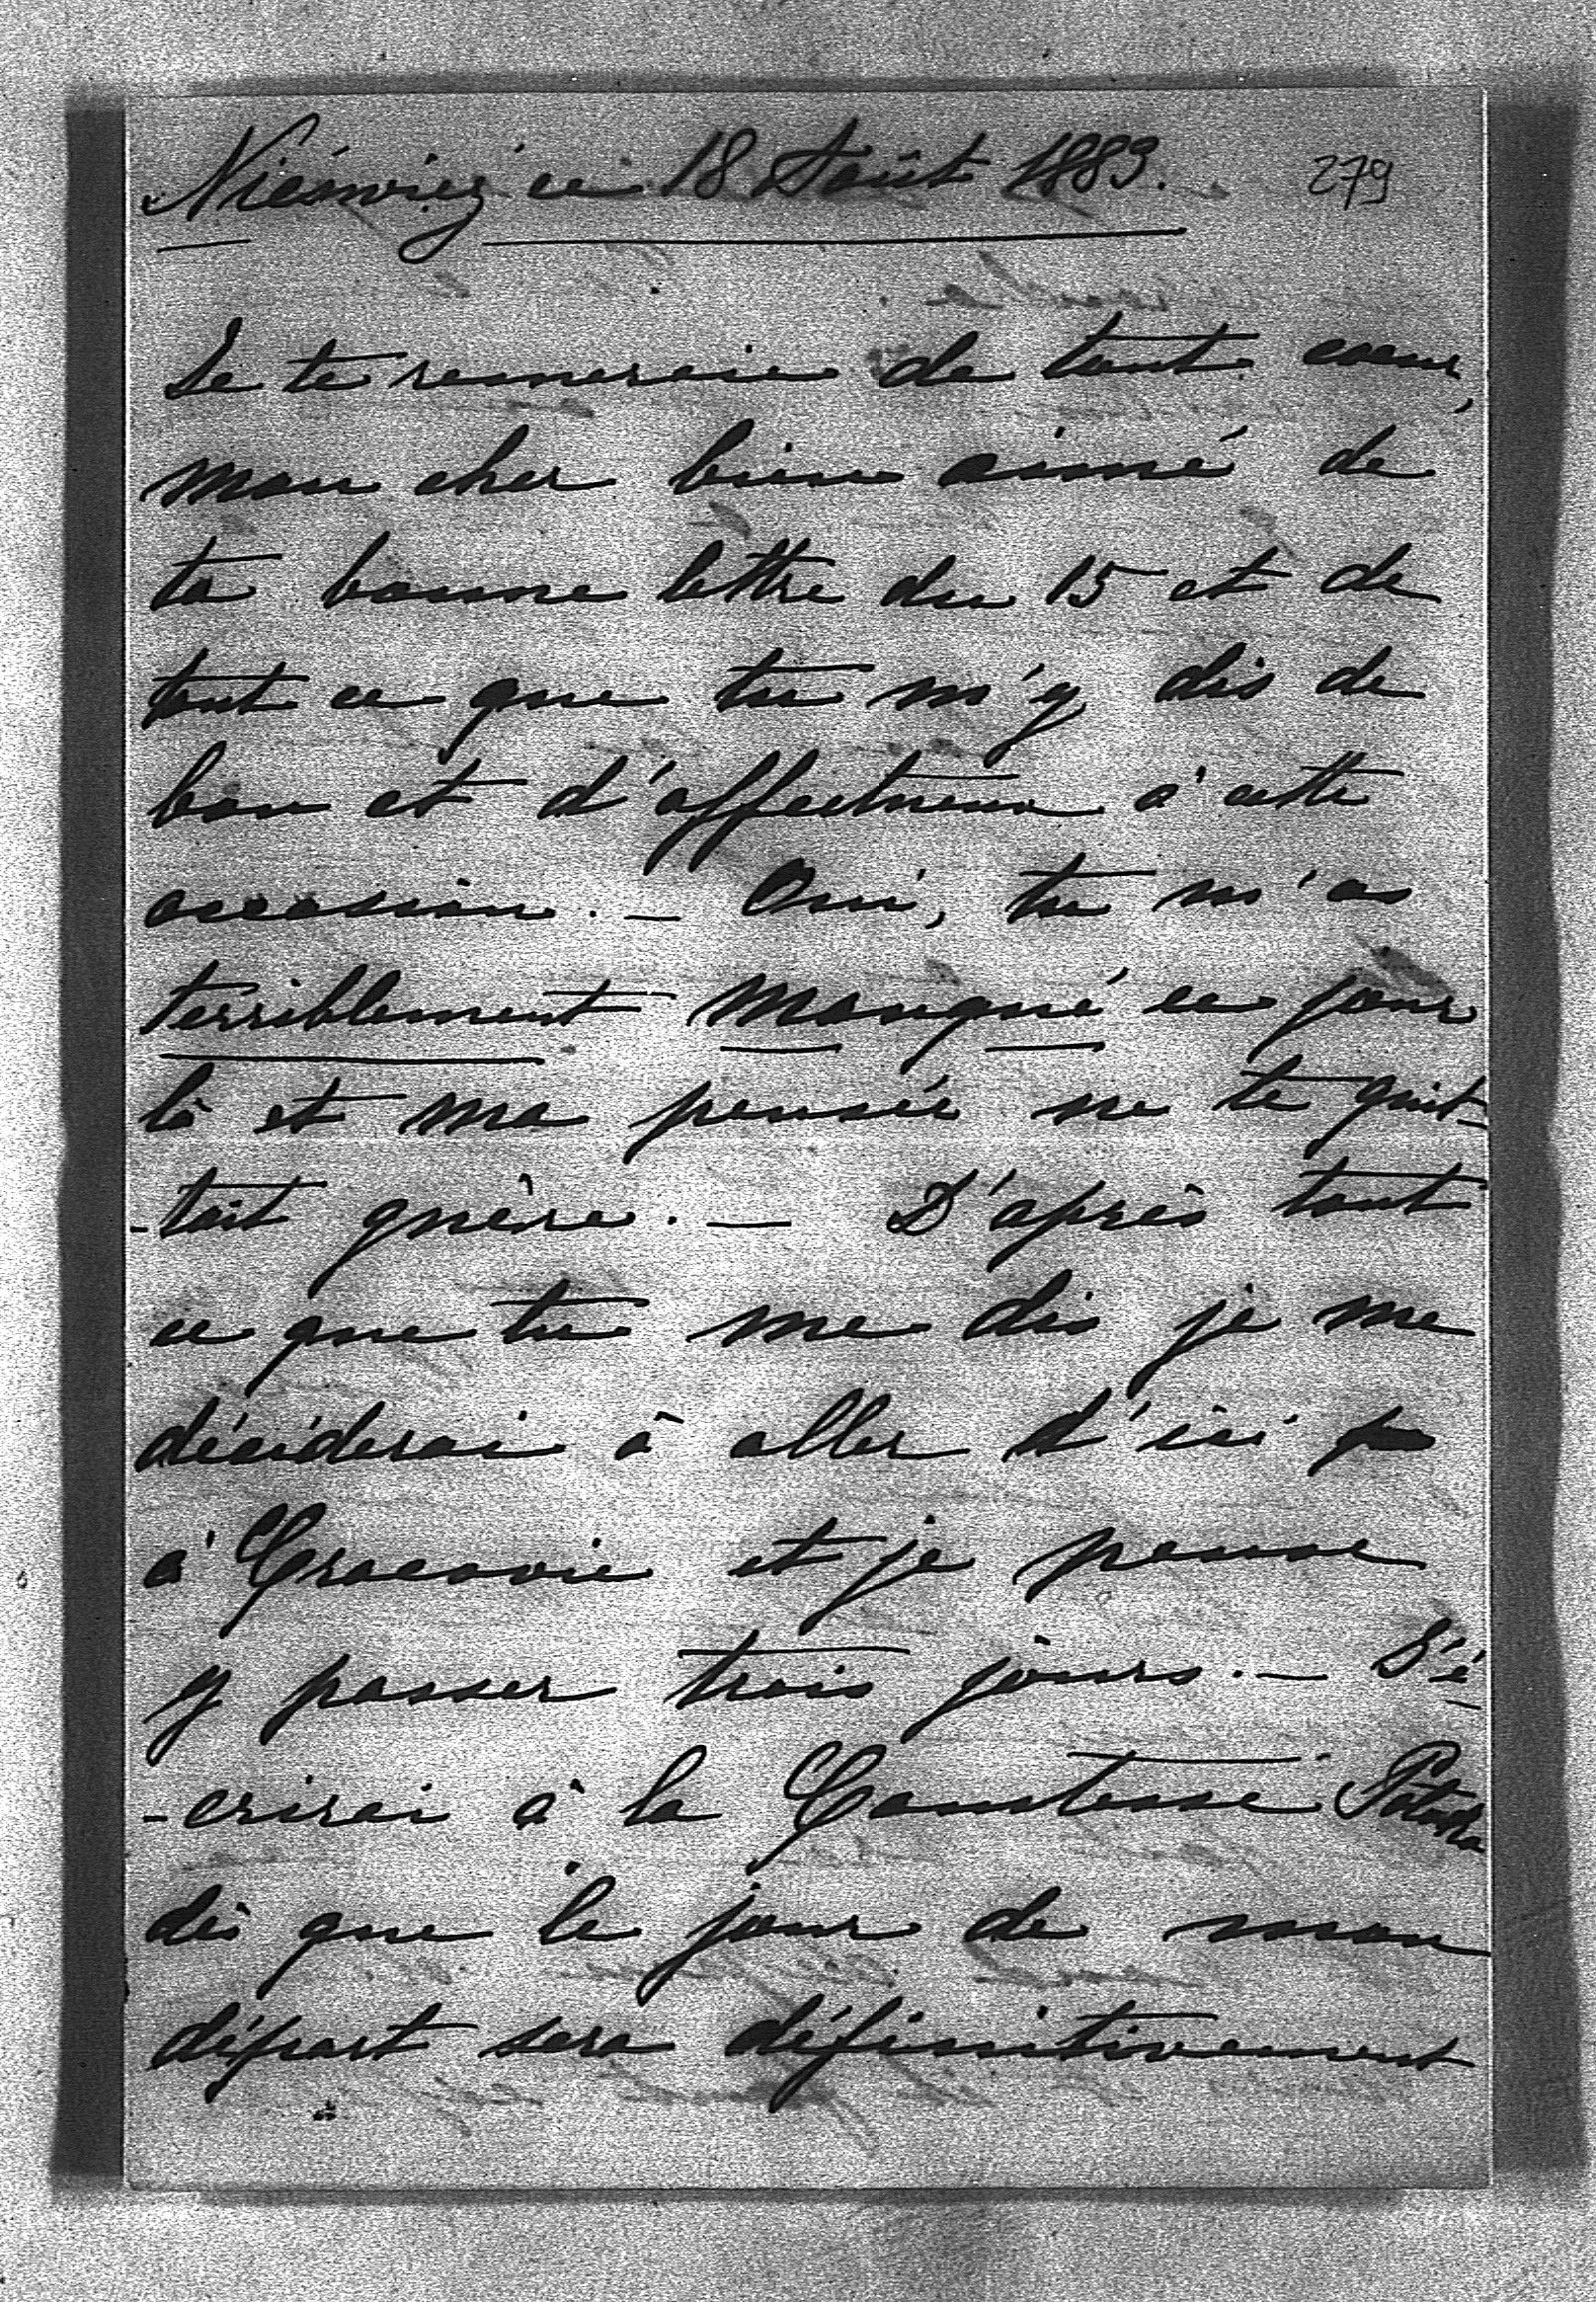 Nieświez ce 18 Août 1889. 279
Je te remercie de tout coeur,
mon cher bien aimé de
ta bonne lettre du 15 et de
tout ce que tu m'y dis de
bon et d'affectueux à cette
occasion. — Oui, tu m'as
terriblement manqué ce jour
là et ma pensée ne te quit-
-tait guère. — D'après tout
ce que tu me dis je me
déciderai à aller d'ici
à Cracovie et je pense
y passer trois jours. — J'é-
-crirai à la Comtesse Potocka
dès que le jour de mon
départ sera définitivement